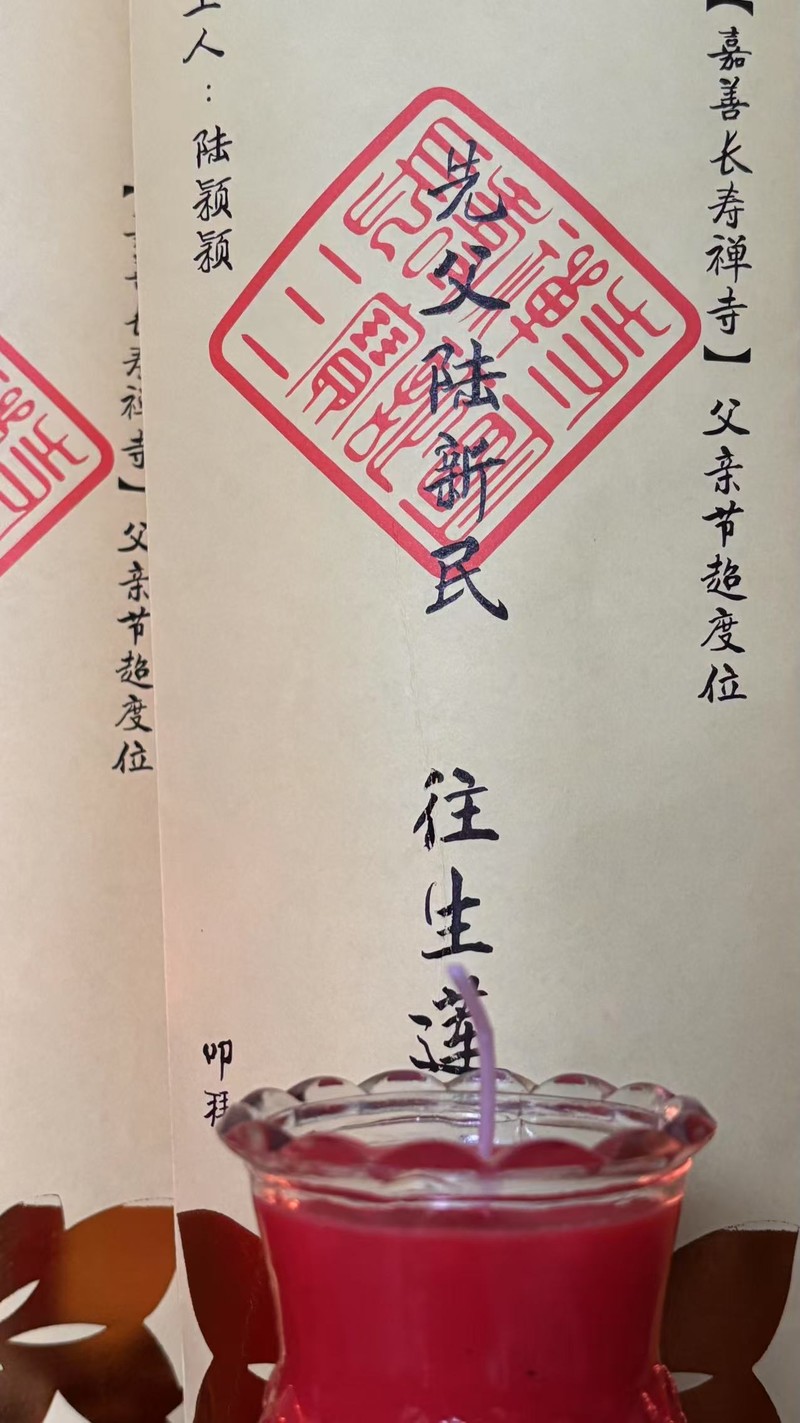 【嘉善长寿禅寺】父亲节超度位
先父陆新民 往生莲
人：陆颖颖 叩拜
寿禅寺】父亲节超度位